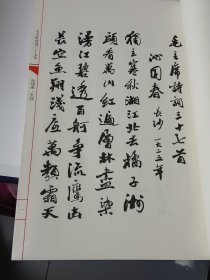 毛主席詩詞三十七首
沁园春 长沙 一九二五年
獨立寒秋湘江北去橘子洲
頭看萬山红遍層林盡染
漫江碧透百舸争流鹰击
長空魚翔浅底萬類霜天